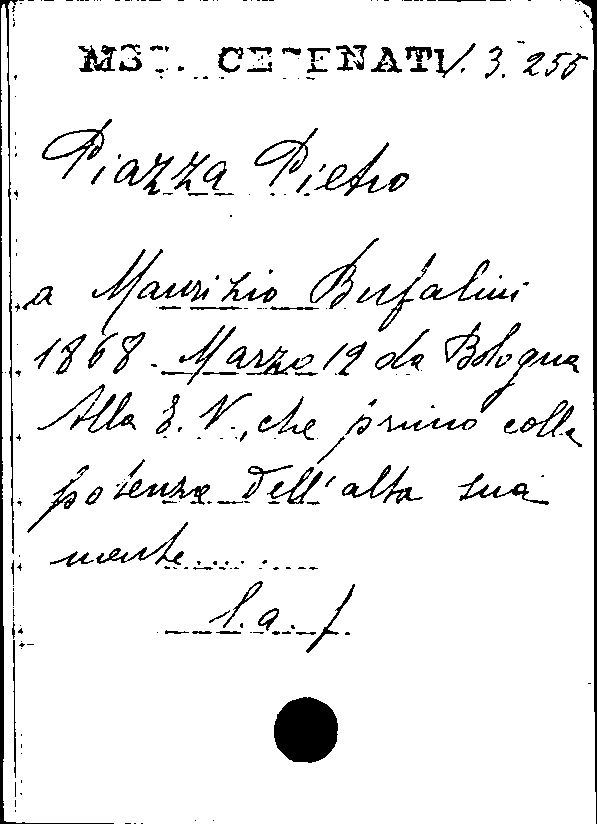 MSS. CESENATI/. 3. 255
Piazza Pietro
a Maurizio Bufalini
1868. Marzo 12 da Bologna
Alla E. V., che primo colla
potenza dell'alta sua
mente......
l. a. f.